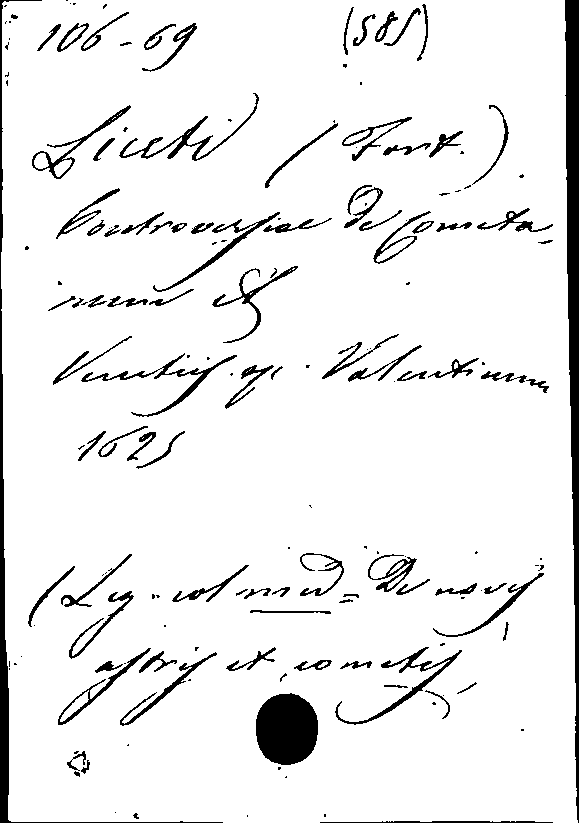 106-69 (585)
Liceti (Fort.)
Controversiae de Cometa-
rum &
Venetiis. ap. Valentinum
1625
(Leg. col med = De novis
astris et cometis,